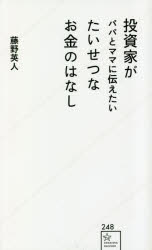 投資家が
パパとママに伝えたい
たいせつな
お金のはなし
藤野英人
248